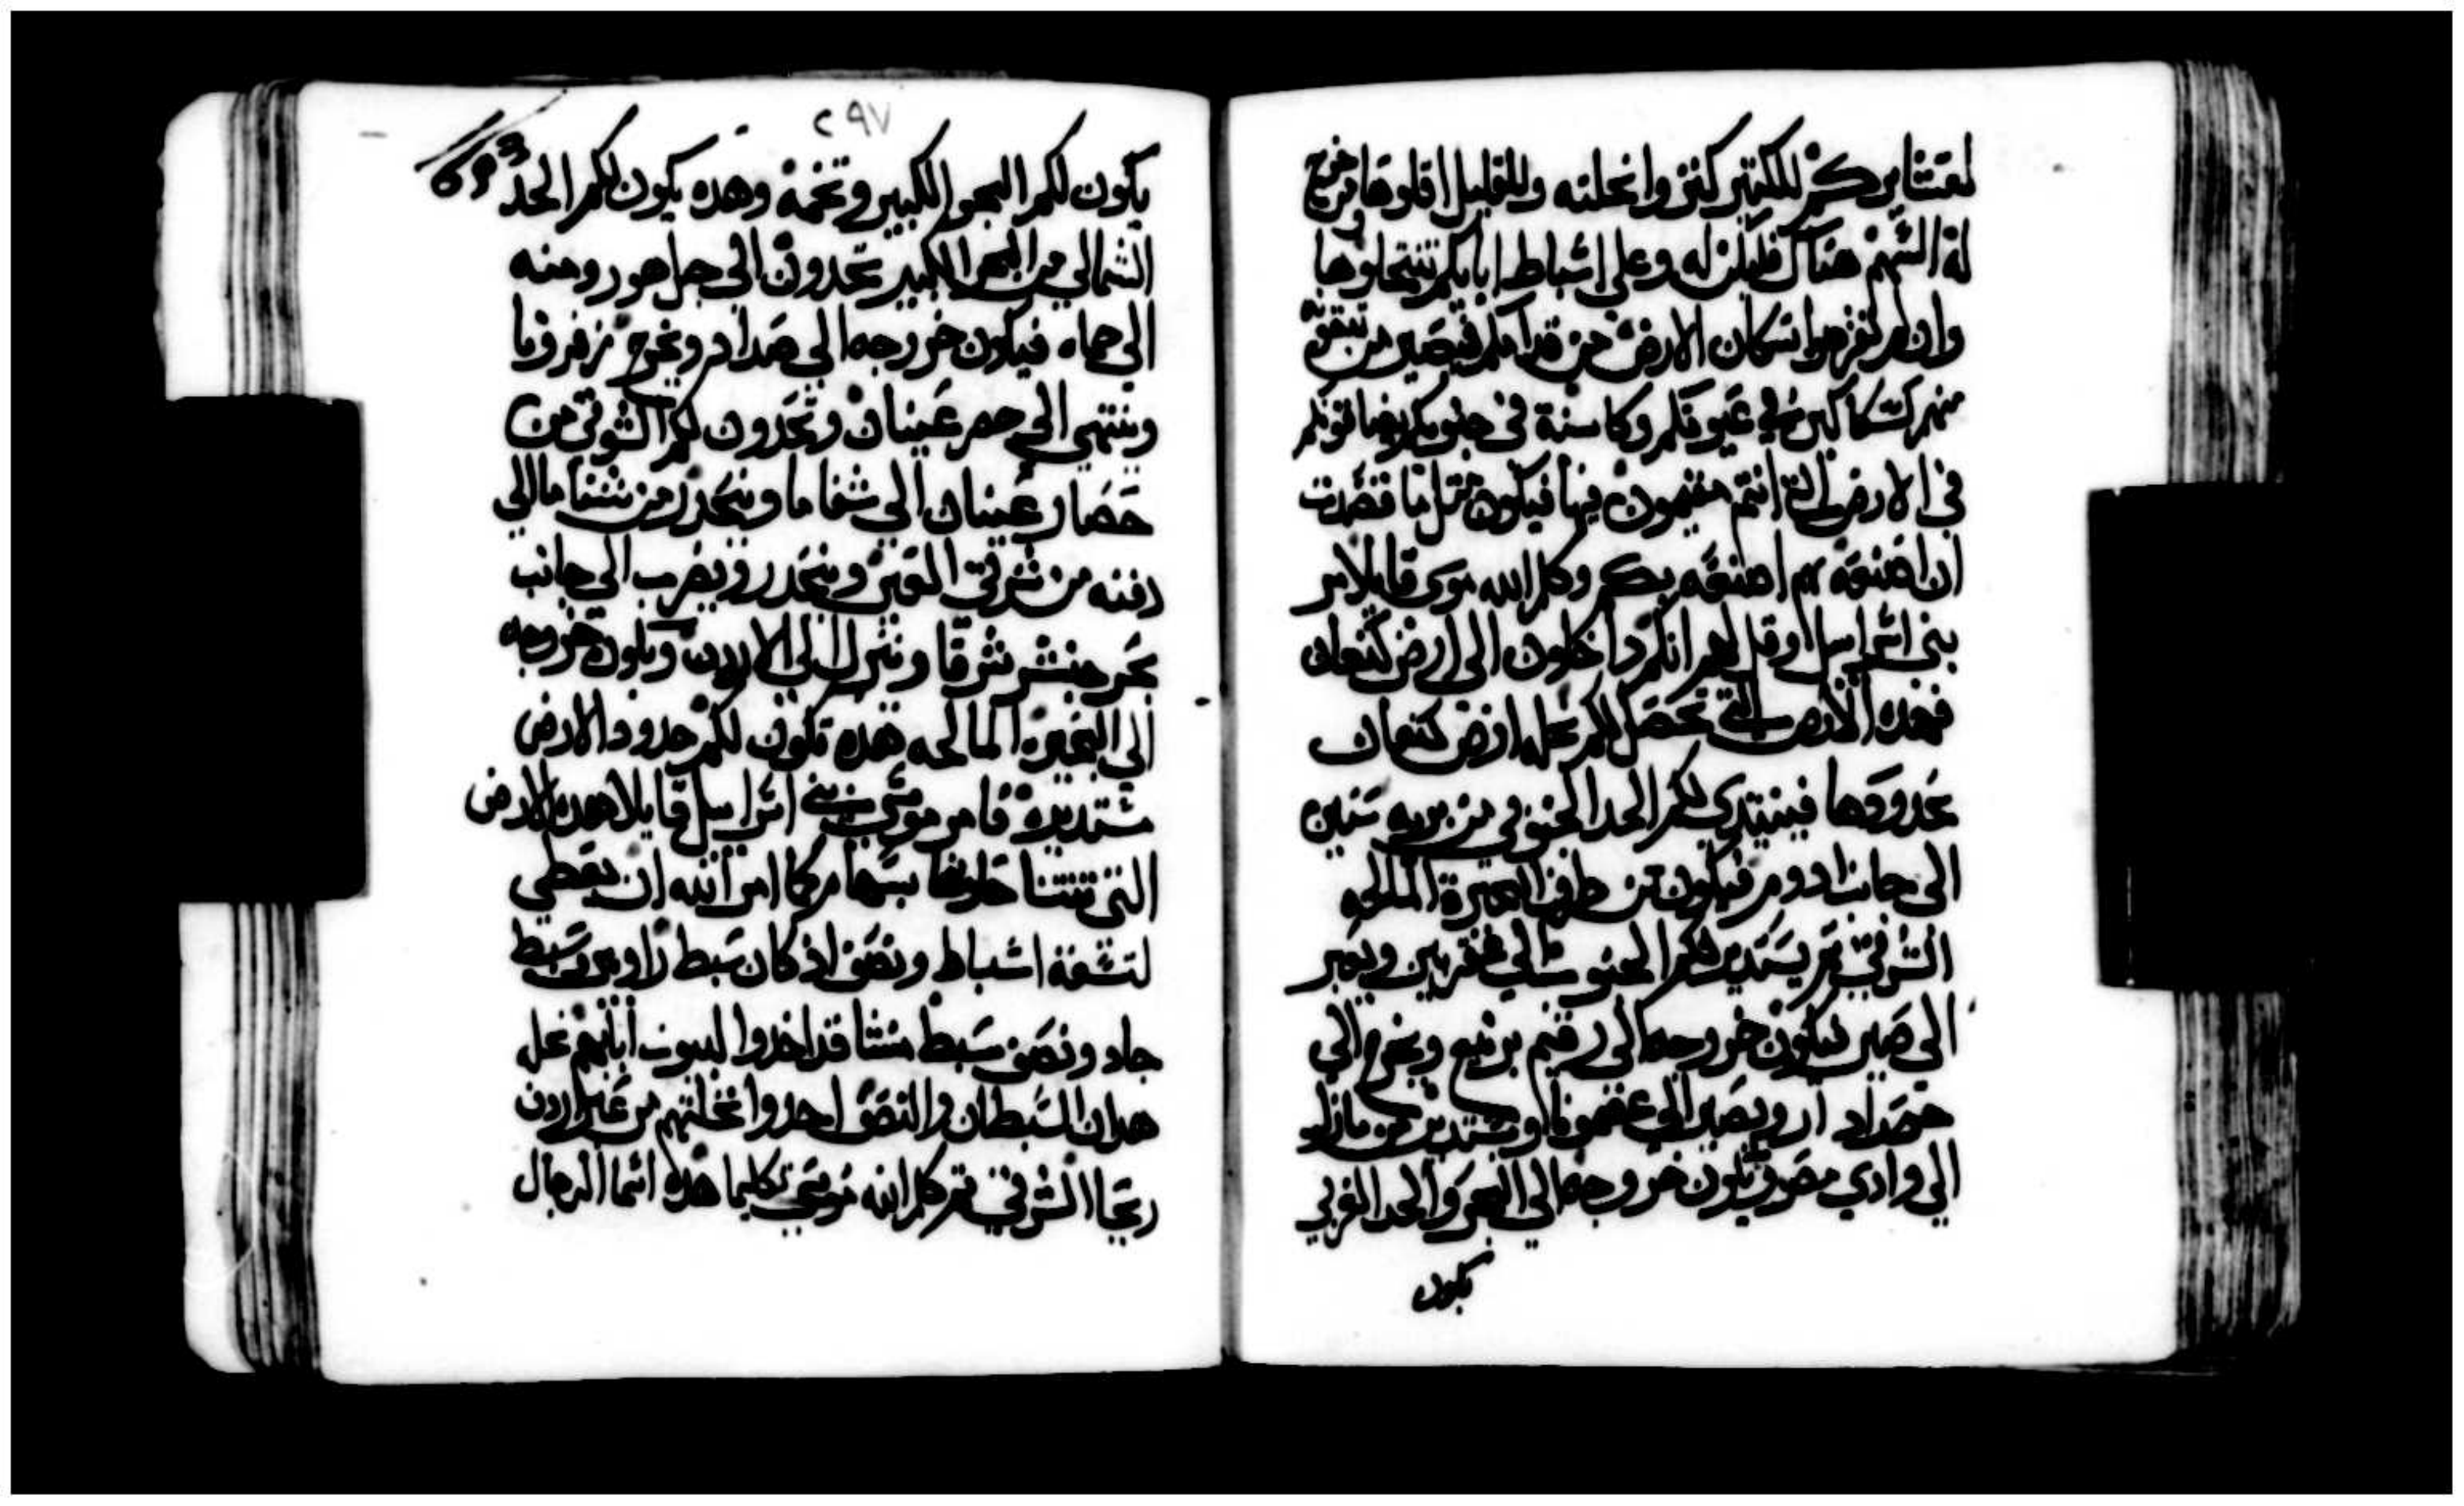 لعشايركم للكثير كثروا نحلته وللقليل اقلوها من خرج
له السهم هناك فليكن له وعلى اسباط ابايكم تنتحلوها
وان لم تقرضوا سكان الارض من قدامكم فيصير من تبقونه
منهم كشكاكين في عيونكم وكاسنة في جنوبكم يضايقونكم
في الارض التي انتم مقيمون فيها فيكون مثل ما قصدت
ان اصنعه بهم اصنعه بكم وكلم الله موسى قايلا مر
بني اسراييل وقل لهم انكم داخلون الى ارض كنعان
فهده الارض التي تحصل لكم نحله ارض كنعان
بحدودها فيبتدي لكم الحد الجنوبي من بريه سين
الى جانب ادوم فيكون من طرف البحيرة المالحه
الشرقي ثم يستدير لكم الجنوب الي عقربين ويعبر
الى صين فيكون خروجه الى رقيم برنيع ويخرج الى
حصداد ار ويصير الى عصمونا ويستدير من
الي وادي مصر فيكون خروجه الى البحر والحد الغربي
يكون
٢٩٧
يكون لكم البحر الكبير وتخمه وهده يكون لكم الحد
الشمالي من البحر الكبير تحدون الى جبل هور ومنه
الى حماه فيكون خروجه الى صداد ويخرج زفرونا
وينتهي الى حصر عينان وتحدون لكم الشرقي من
حصار عينان الى شفاما وينحدر من شفاما الي
دفنه من شرقي العين وينحدر ويضرب الى جانب
بحر جنسر شرقا وينزل الى الاردن ويكون خروجه
الى البحيره المالحه هده تكون لكم حدود الارض
مستديره فامر موسى بني اسراييل قايلا هده الارض
التي تتناحلونها بسهام كما امر الله ان يعطي
لتسعة اسباط ونصف اذ كان سبط راوبين وسبط
جاد ونصف سبط منشا قد اخدوا لبيوت ابايهم نحل
هدان السبطان والنصف اخدوا نحلتهم من عبر اردن
ريحا الشرقي ثم كلم الله موسى تكليما هده اسما الرجال